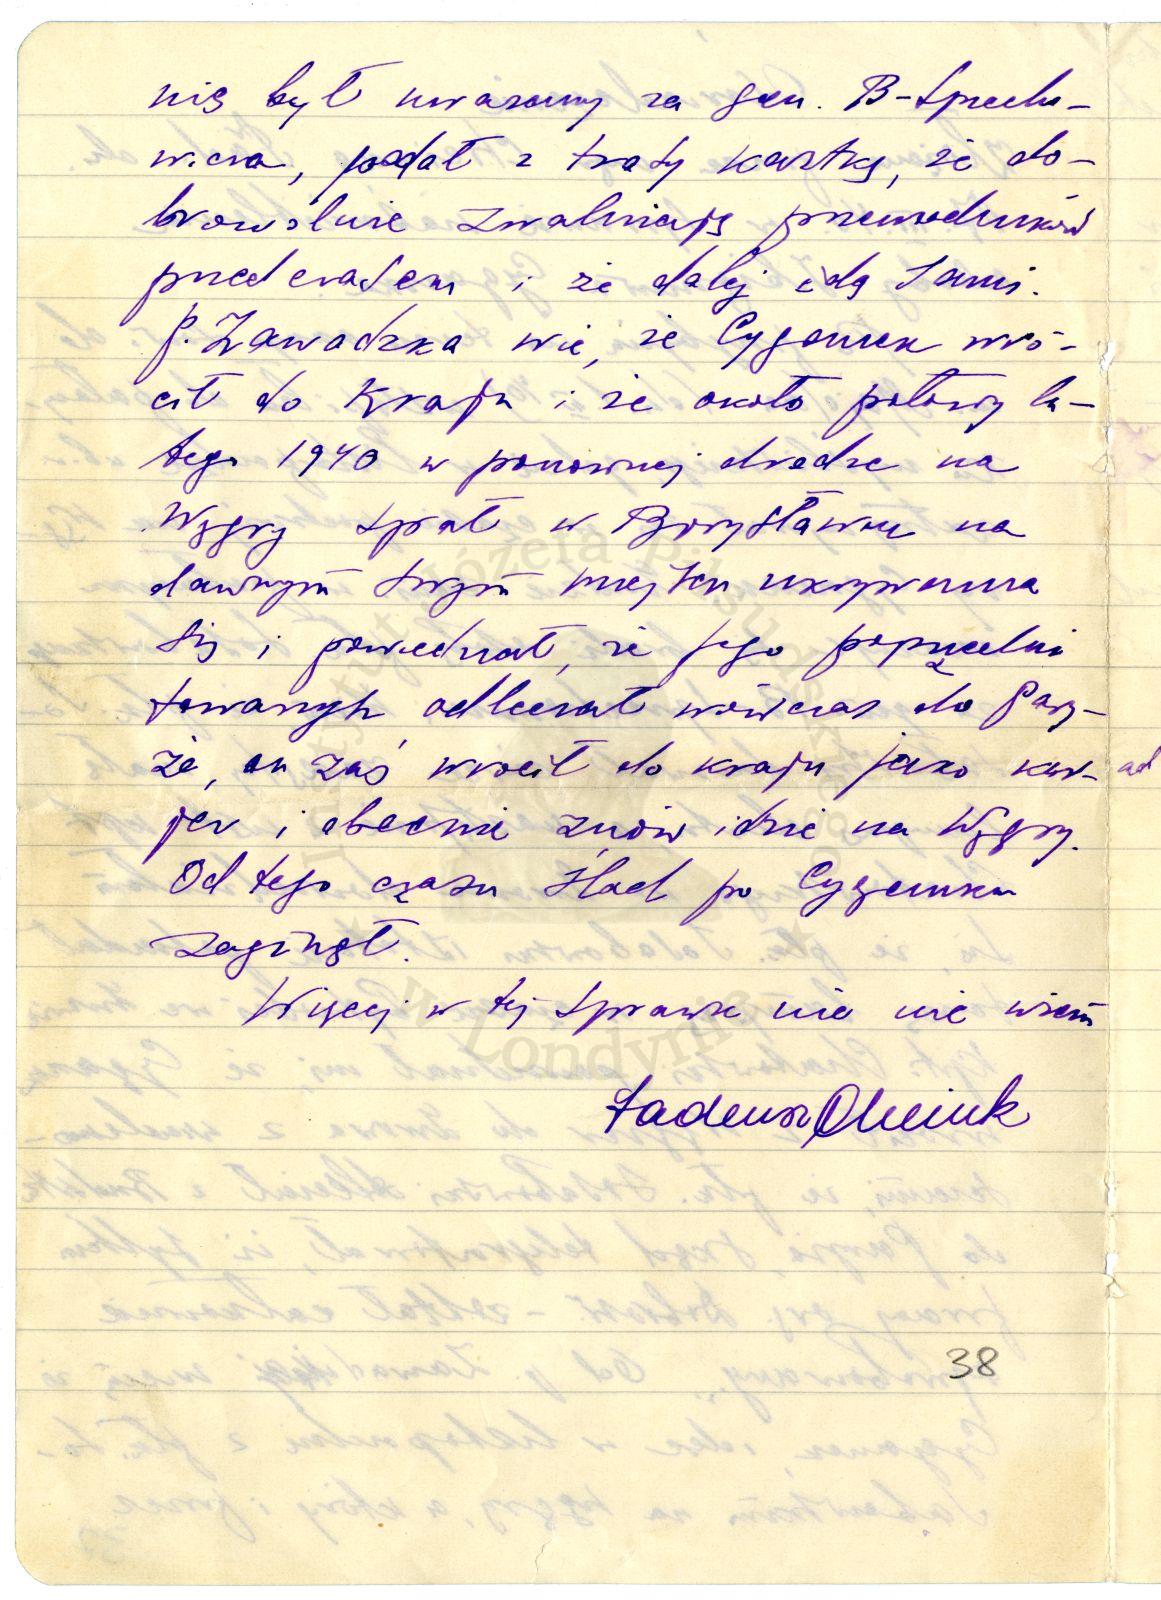 nią był uważany za gen. B-Spiecho-
wicza, podał z trasy kartkę, że do-
browolnie zwalniają przewodników
przed czasem i że dalej idą sami.
P. Zawadzka wie, że Cyganek wró-
cił do Kraju i że około połowy lu-
tego 1940 w ponownej drodze na
Węgry spał w Borysławiu na
dawnym swym miejscu ukrywania
się i powiedział, że jego poprzedni
towarzysz odleciał wówczas do Pary-
ża, on zaś wrócił do kraju jako kur-
jer i obecnie znów idzie na Węgry.
Od tego czasu ślad po Cyganku
zaginął.
Więcej w tej sprawie nic nie wiem
Tadeusz Oleniuk
38
Instytut Józefa Piłsudskiego
w Londynie